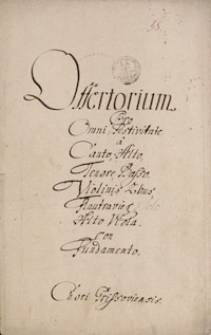 Offertorium
Pro
Omni Festivitate
à
Canto, Alto,
Tenore, Basso.
Violinis 2bus
Alto Viola.
Con
Fundamento.
Chori Grissoviensis.